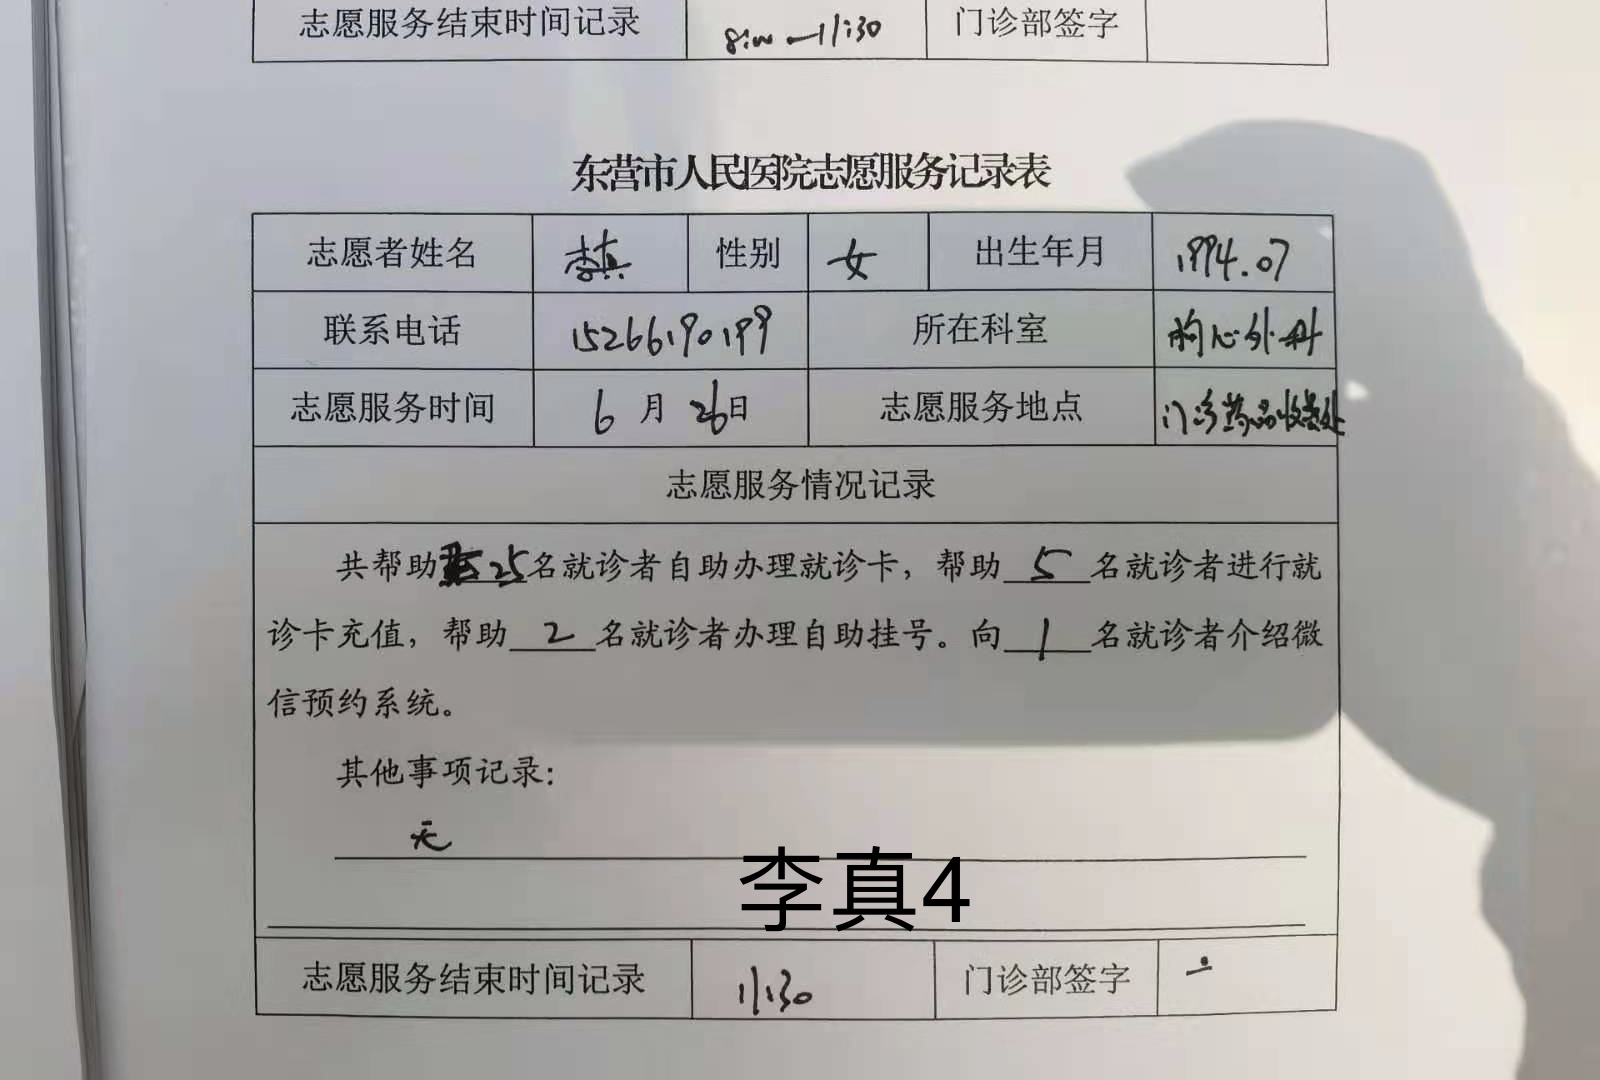 志愿服务结束时间记录 8:00—11:30 门诊部签字
东营市人民医院志愿服务记录表
志愿者姓名 李真 性别 女 出生年月 1994.07
联系电话 15266190199 所在科室 胸心外科
志愿服务时间 6月26日 志愿服务地点 门诊药品收费处
志愿服务情况记录
共帮助25名就诊者自助办理就诊卡，帮助5名就诊者进行就
诊卡充值，帮助2名就诊者办理自助挂号。向1名就诊者介绍微
信预约系统。
其他事项记录：
无
李真4
志愿服务结束时间记录 11:30 门诊部签字